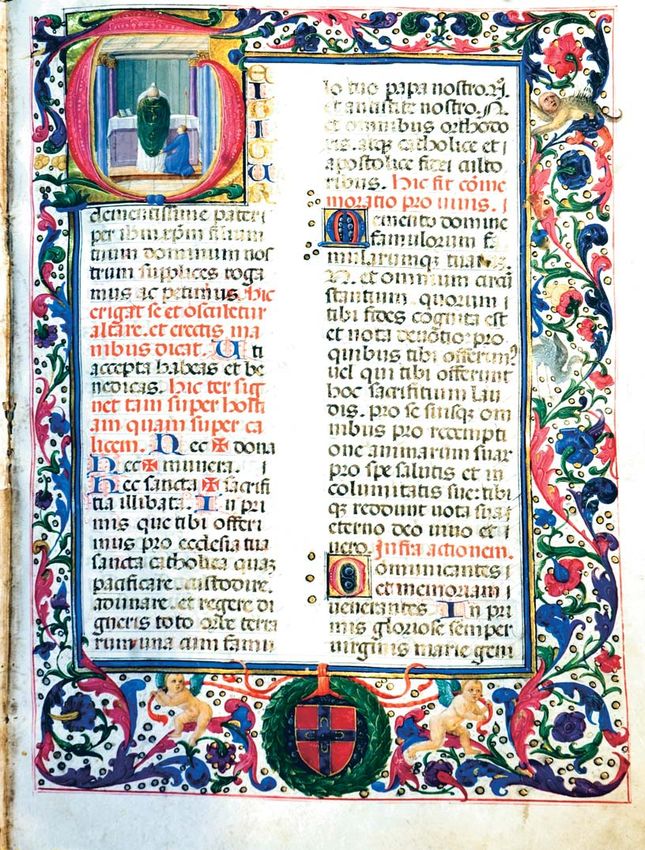 TE IGITUR
clementissime pater
per ihm xpm filium
tuum dominum nos
trum supplices roga
mus ac petimus. Hic
erigat se et osculetur
altare. et erectis ma
nibus dicat. Uti
accepta habeas et be
nedicas. Hic ter sig
net tam super hosti
am quam super ca
licem. Hec ✠ dona
Hec ✠ munera.
Hec sancta ✠ sacrifi
tia illibata. In pri
mis que tibi offeri
mus pro ecclesia tua
sancta catholica quaz
pacificare. custodire.
adunare. et regere di
gneris toto orbe terra
rum una cum famu
lo tuo papa nostro. N.
et antistite nostro. N.
et omnibus orthodo
xis. atque catholice et
apostolice fidei culto
ribus. Hic fit come
moratio pro vivis.
Memento domine
famulorum fa
mularumque tuarum
N. et omnium circu
stantium. quorum
tibi fides cognita est
et nota devotio. pro
quibus tibi offerimus
vel qui tibi offerunt
hoc sacrifitium lau
dis. pro se suisque om
nibus pro redempti
one animarum suar
pro spe salutis et in
columitatis sue: tibi
que reddunt vota sua
eterno deo vivo et
vero. Infra actionem.
Communicantes
et memoriam
venerantes In pri
mis gloriose semper
virginis marie geni